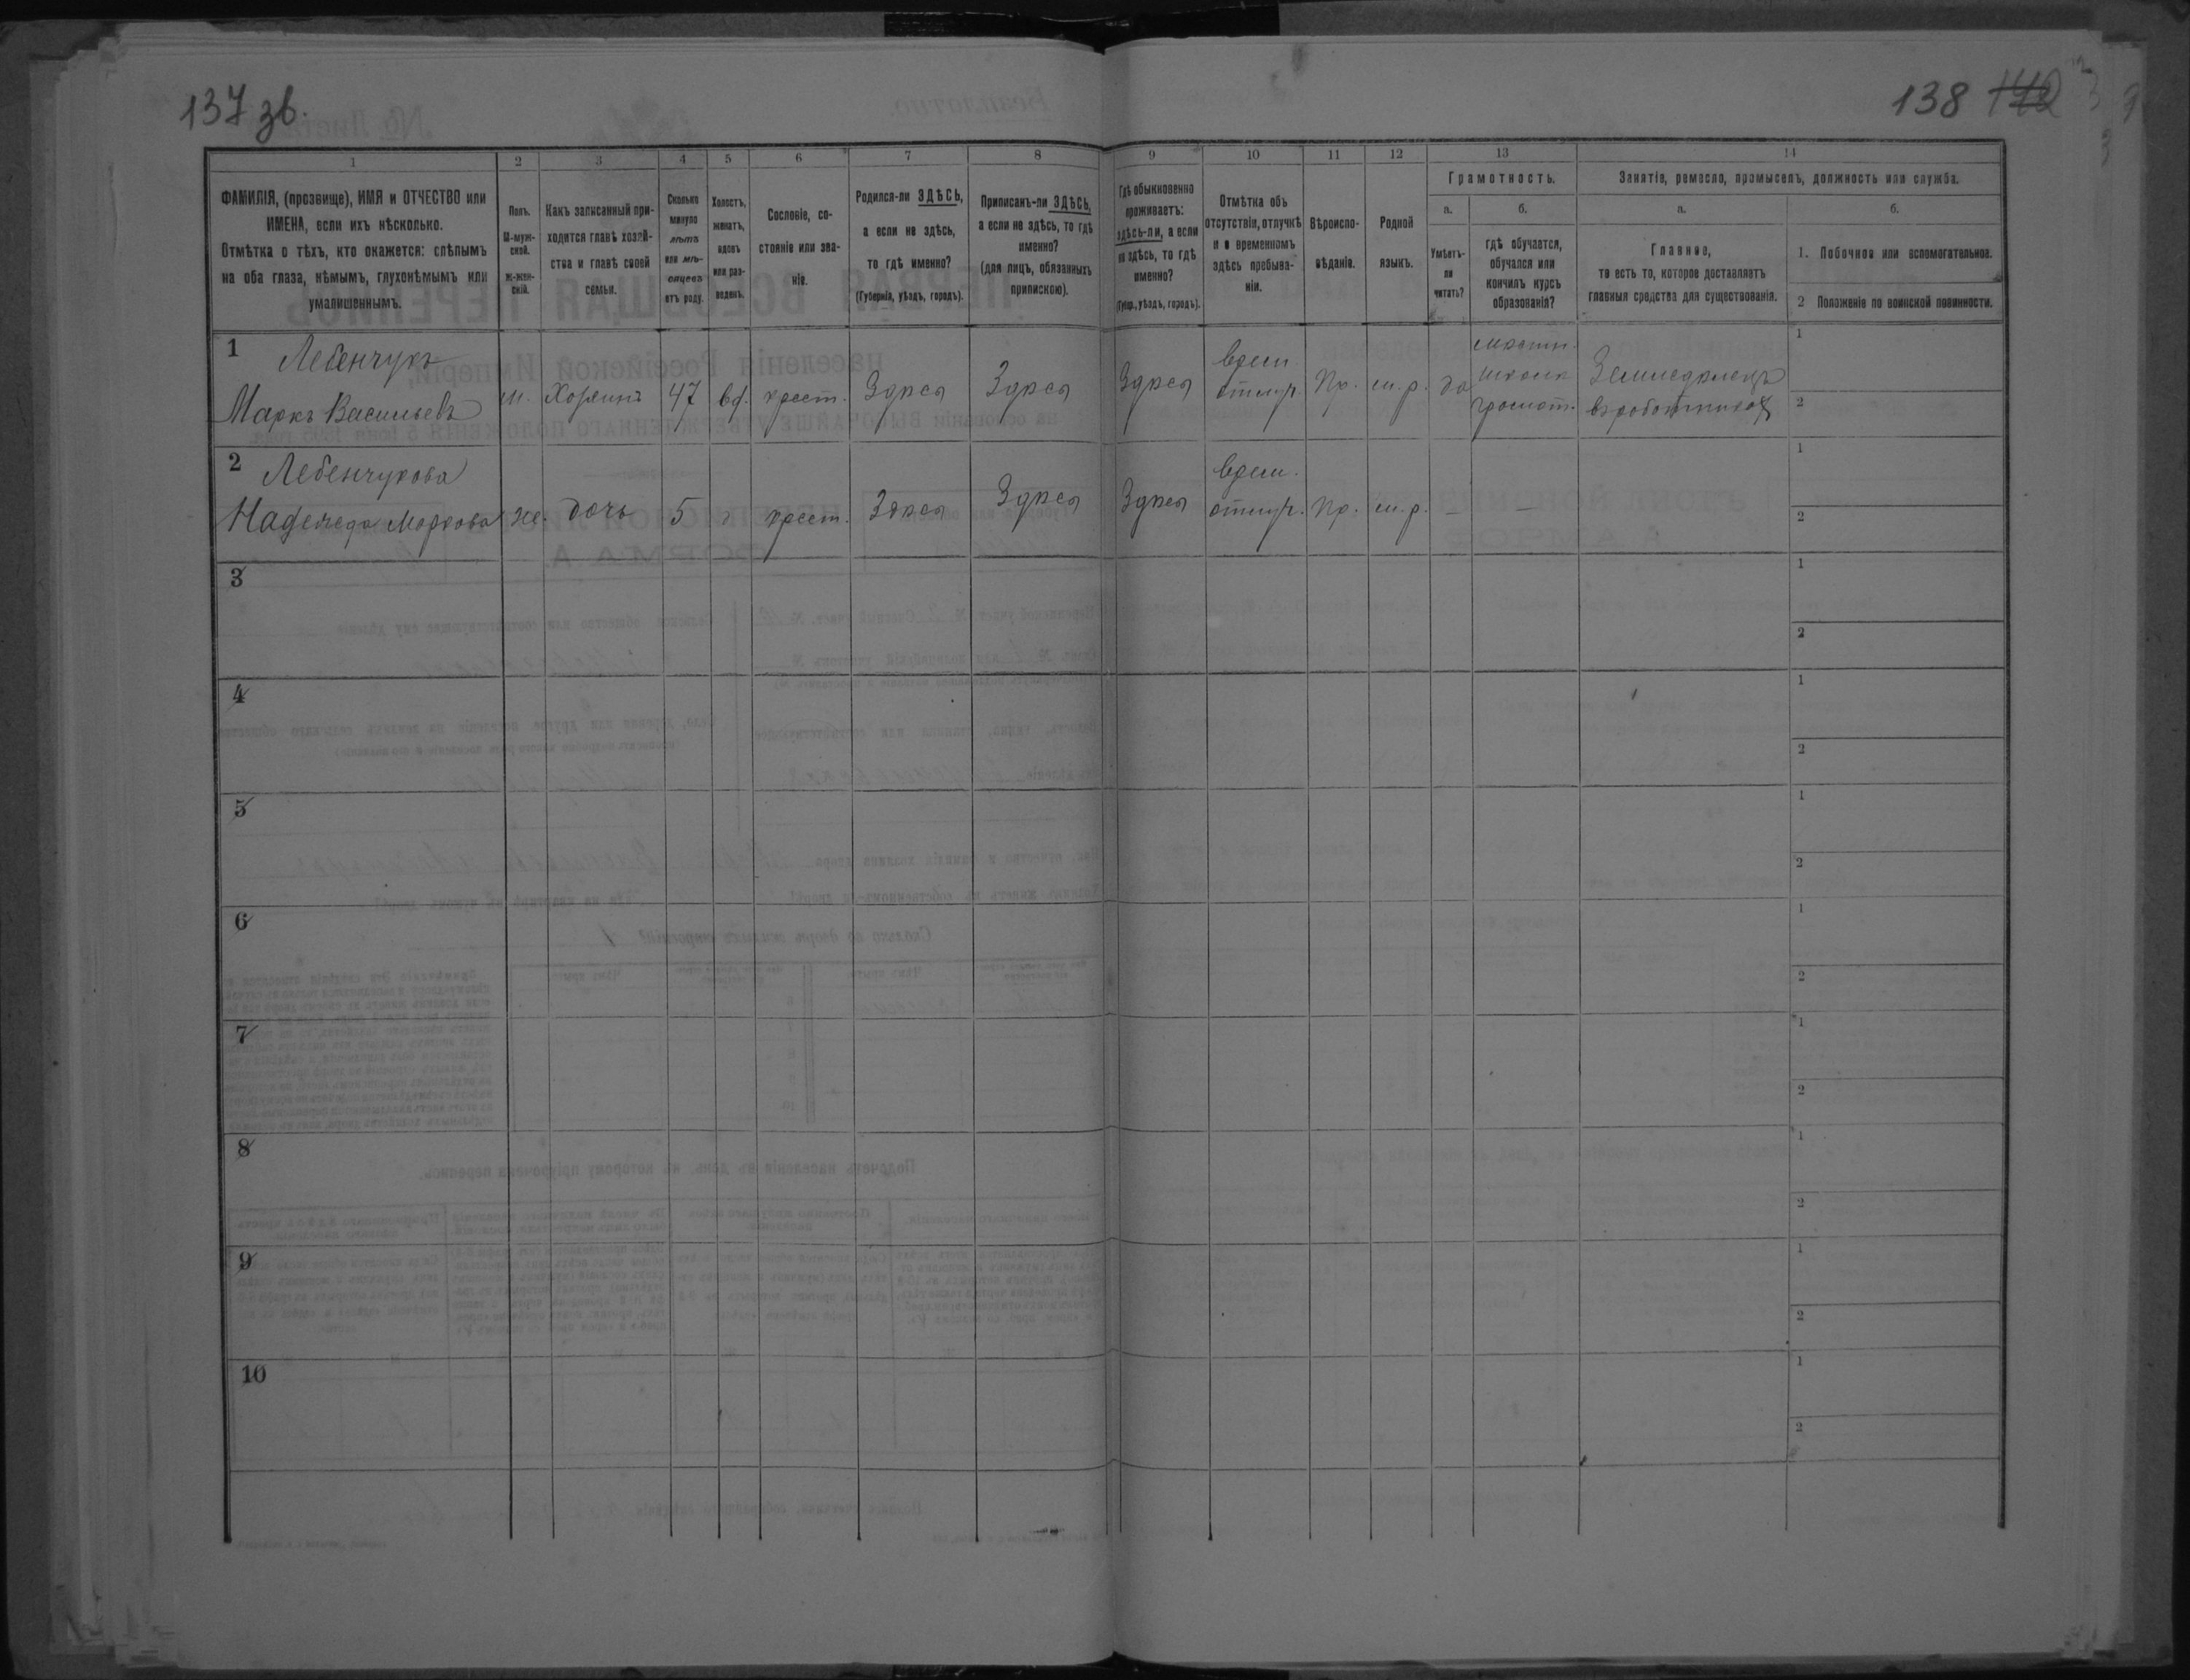 137 зв.
138 142
1 2 3 4 5 6 7 8 9 10 11 12 13 14
ФАМИЛІЯ, (прозвище), ИМЯ и ОТЧЕСТВО или
ИМЕНА, если ихъ нѣсколько.
Отмѣтка о тѣхъ, кто окажется: слѣпымъ
на оба глаза, нѣмымъ, глухонѣмымъ или
умалишеннымъ.
Полъ.
М-муж-
ской.
ж-жен-
скій.
Какъ записанный при-
ходится главѣ хозяй-
ства и главѣ своей
семьи.
Сколько
минуло
лѣтъ
или мѣ-
сяцевъ
отъ роду.
Холостъ,
женатъ,
вдовъ
или раз-
веденъ.
Сословіе, со-
стояніе или зва-
ніе.
Родился-ли ЗДѢСЬ,
а если не здѣсь,
то гдѣ именно?
(Губернія, уѣздъ, городъ).
Приписанъ-ли ЗДѢСЬ,
а если не здѣсь, то гдѣ
именно?
(для лицъ, обязанныхъ
припискою).
Гдѣ обыкновенно
проживаетъ:
здѣсь-ли, а если
не здѣсь, то гдѣ
именно?
(Губер., уѣздъ, городъ).
Отмѣтка объ
отсутствіи, отлучкѣ
и о временномъ
здѣсь пребыва-
ніи.
Вѣроиспо-
вѣданіе.
Родной
языкъ.
Грамотность.
а.
Умѣетъ-
ли
читать?
б.
гдѣ обучается,
обучался или
кончилъ курсъ
образованія?
Занятіе, ремесло, промыселъ, должность или служба.
а.
Главное,
то есть то, которое доставляетъ
главныя средства для существованія.
б.
1. Побочное или вспомогательное.
2 Положеніе по воинской повинности.
1 Лебенчукъ
Маркъ Васильевъ м. Хозяинъ 47 вд. крест. Здѣсь Здѣсь Здѣсь врем. отлуч. Пр. м.р. да грамот. Земледѣлецъ 1
2
2 Лебенчукова
Надежда Маркова ж. дочь 5 крест. Здѣсь Здѣсь Здѣсь врем. отлуч. Пр. м.р. – – 1
2
3 1
2
4 1
2
5 1
2
6 1
2
7 1
2
8 1
2
9 1
2
10 1
2